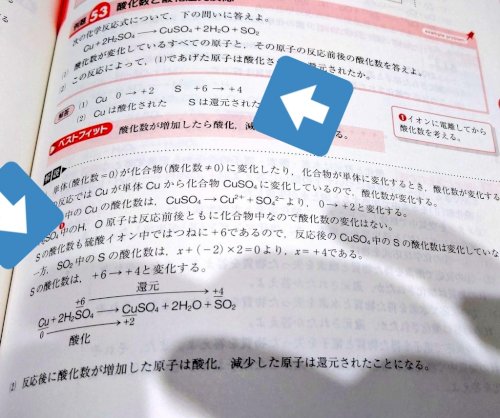 例題 53 酸化数と酸化
example problem
次の化学反応式について，下の問いに答えよ。
Cu + 2H₂SO₄ ⟶ CuSO₄ + 2H₂O + SO₂
(1) 酸化数が変化しているすべての原子と，その原子の反応前後の酸化数を答えよ。
(2) この反応によって，(1)であげた原子は酸化さ 還元されたか。
解答 (1) Cu 0 → +2 S +6 → +4
(2) Cuは酸化された Sは還元された
❶イオンに電離してから
酸化数を考える。
ベストフィット 酸化数が増加したら酸化，減 る。
解説
単体(酸化数=0)が化合物(酸化数≠0)に変化したり，化合物が単体に変化するとき，酸化数が変化する
の反応ではCuが単体Cuから化合物CuSO₄に変化しているので，酸化数が変化する。
中のCuの酸化数は，CuSO₄ → Cu²⁺ + SO₄²⁻より，0 → +2と変化する。
SO₄中のH，O原子は反応前後ともに化合物中なので酸化数の変化はない。
Sの酸化数も硫酸イオン中ではつねに+6であるので，反応後のCuSO₄中のSの酸化数は変化していな
一方，SO₂中のSの酸化数は，x+(−2)×2=0より，x=+4である。
Sの酸化数は，+6 → +4と変化する。
還元
+6 +4
Cu + 2H₂SO₄ ⟶ CuSO₄ + 2H₂O + SO₂
0 +2
酸化
(2) 反応後に酸化数が増加した原子は酸化，減少した原子は還元されたことになる。